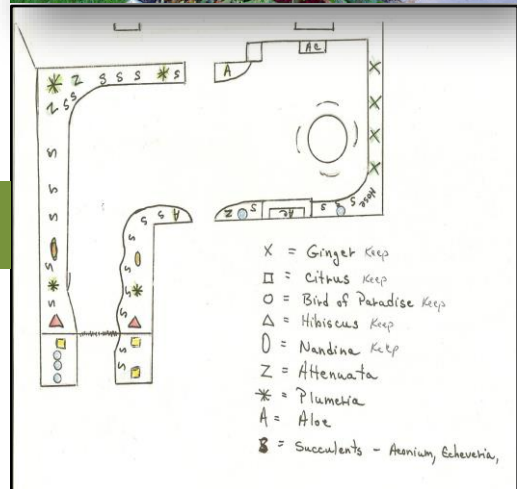 Z S S S S
S
A
AC
S
S
Z
S
S
S
S
S
S
S
S
S
A
Z
S
AC
S
S
Hose
S
S
S
S
S
X = Ginger Keep
□ = Citrus Keep
O = Bird of Paradise Keep
△ = Hibiscus Keep
0 = Nandina Keep
Z = Attenuata
* = Plumeria
A = Aloe
S = Succulents - Aeonium, Echeveria,